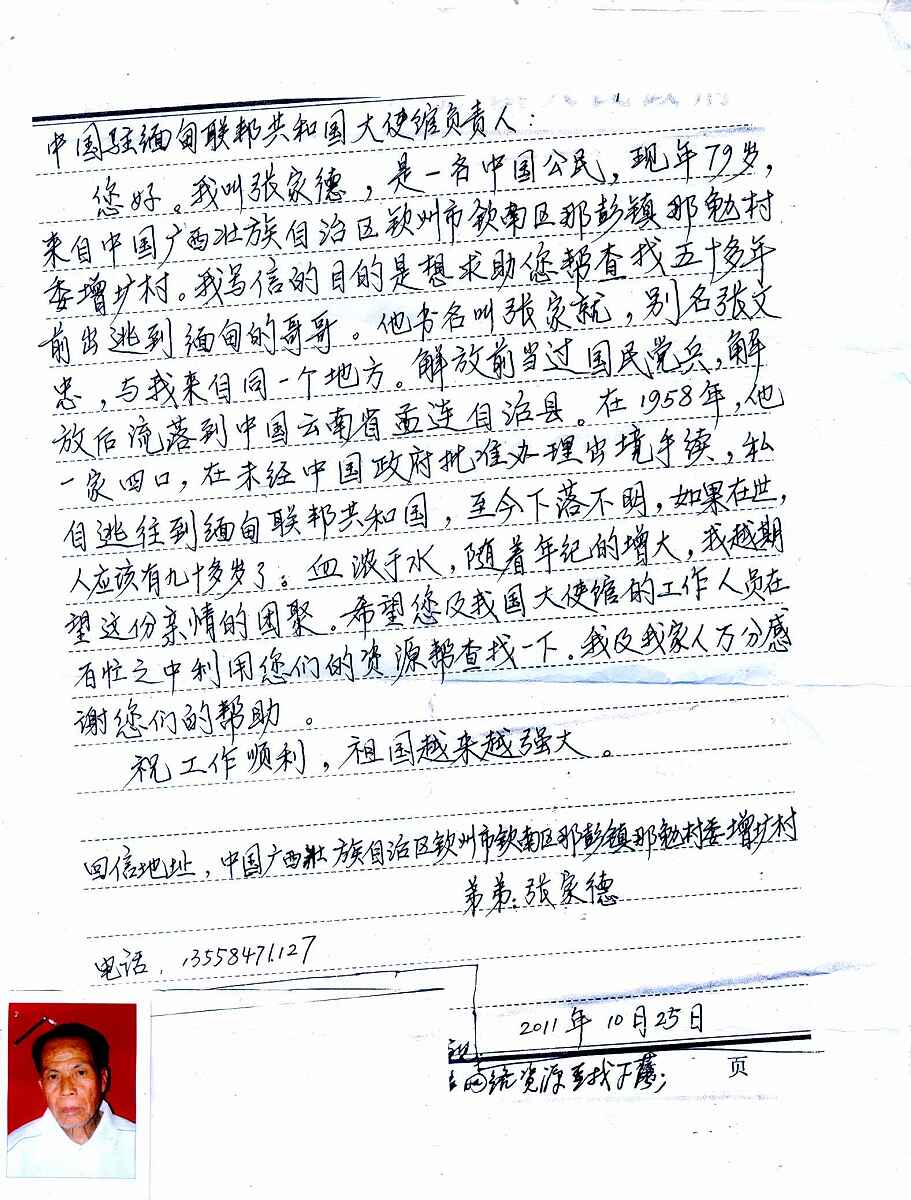 中国驻缅甸联邦共和国大使馆负责人：
您好。我叫张家德，是一名中国公民，现年79岁，
来自中国广西壮族自治区钦州市钦南区那彭镇那勉村
委增圹村。我写信的目的是想求助您帮查找五十多年
前出逃到缅甸的哥哥。他书名叫张家就，别名张文
忠，与我来自同一个地方。解放前当过国民党兵，解
放后流落到中国云南省孟连自治县。在1958年，他
一家四口，在未经中国政府批准办理出境手续，私
自逃往到缅甸联邦共和国，至今下落不明，如果在世，
人应该有九十多岁了。血浓于水，随着年纪的增大，我越期
望这份亲情的团聚。希望您及我国大使馆的工作人员在
百忙之中利用您们的资源帮查找一下。我及我家人万分感
谢您们的帮助。
祝工作顺利，祖国越来越强大。
回信地址，中国广西壮族自治区钦州市钦南区那彭镇那勉村委增圹村
弟弟：张家德
电话：13558471127
2011年10月25日
资源
页